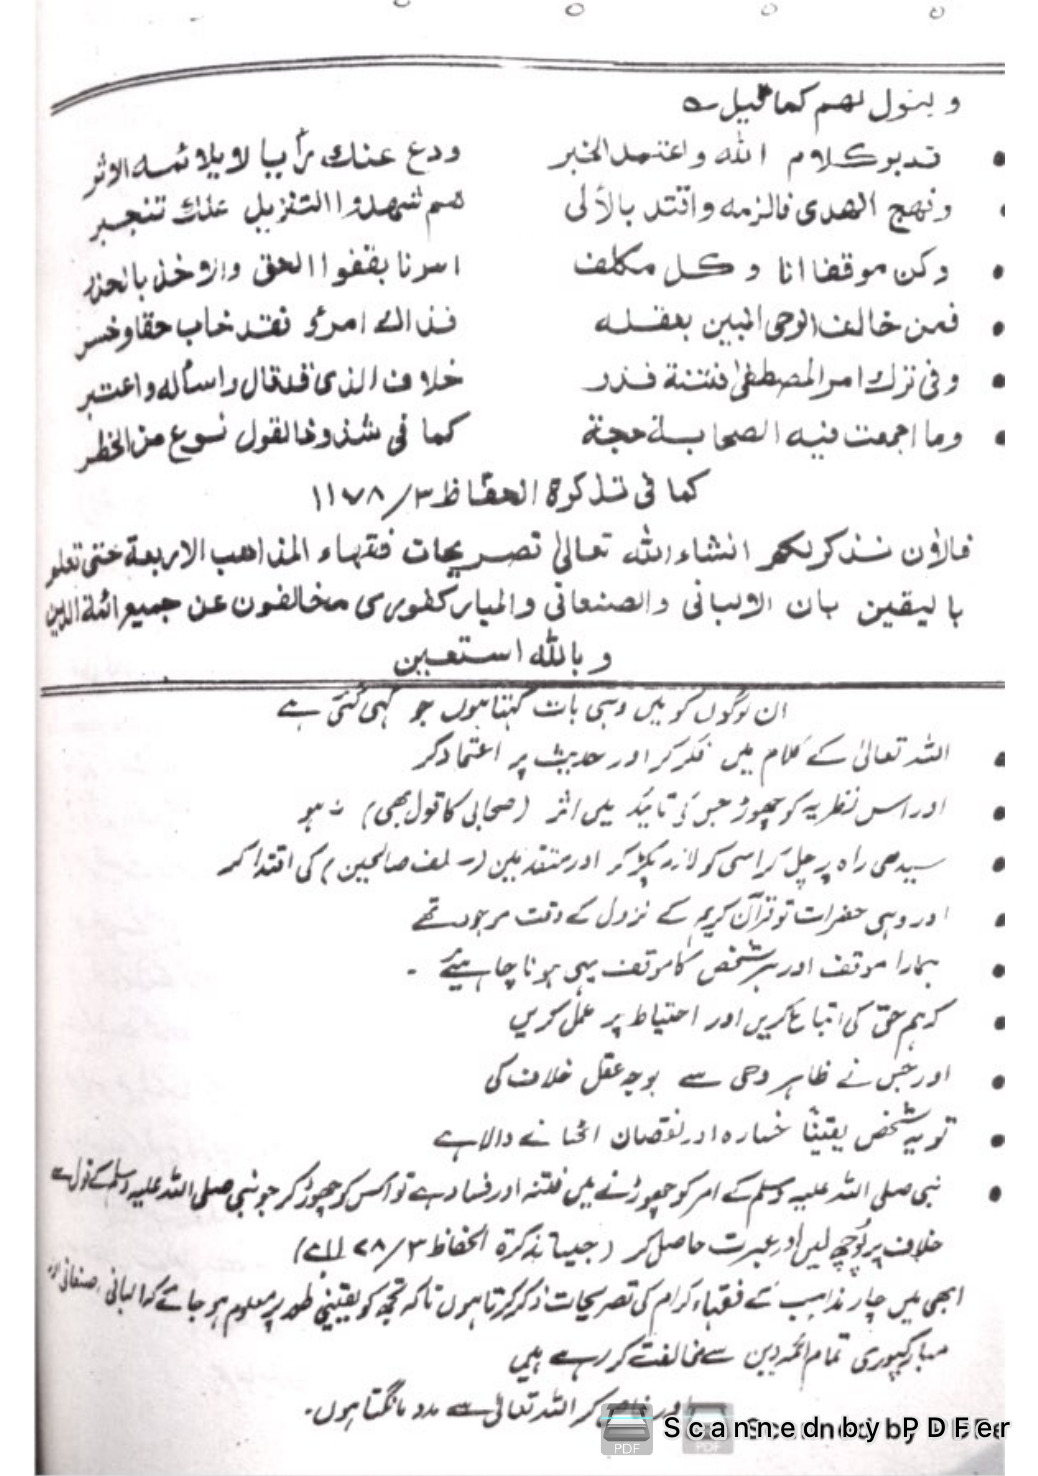 ونقول لهم كما قيل
تدبر كلام الله واعتمد الخبر ودع عنك رأيا لا يلائمه الاثر
ونهج الهدى فالزمه واقتد بالألى هم شهدوا التنزيل علك تنجبر
وكن موقفا انا وكل مكلف امرنا بقفوا الحق والاخذ بالحذر
فمن خالف الوحى المبين بعقله فذاك امرؤ فقد خاب حقا وخسر
وفى ترك امر المصطفى فتنة فذر خلاف الذى قد قال واسأله واعتبر
وما اجمعت فيه الصحابة حجة كما فى شذوذ القول نوع من الخطر
كما فى تذكرة الحفاظ ٣/١١٧٨
فالاٰن نذكر لكم انشاء الله تعالىٰ تصريحات فقهاء المذاهب الاربعة حتى تعلم
باليقين بان الالبانى والصنعانى والمباركفورى مخالفون عن جميع ائمة الدين
وبالله استعين
ان لوگوں کو میں وہی بات کہتا ہوں جو کہی گئی ہے
اللہ تعالیٰ کے کلام میں فکر کر اور حدیث پر اعتماد کر
اور اس نظریہ کو چھوڑ جس کی تائید میں اثر (صحابی کا قول بھی) نہ ہو
سیدھی راہ پر چل کر اسی کو لازم پکڑ کر اور متقدمین (سلف صالحین) کی اقتدا کر
اور وہی حضرات تو قرآن کریم کے نزول کے وقت موجود تھے
ہمارا موقف اور ہر شخص کا موقف یہی ہونا چاہئیے ۔
کہ ہم حق کی اتباع کریں اور احتیاط پر عمل کریں
اور جس نے ظاہر وحی سے بوجہ عقل خلاف کی
تو یہ شخص یقیناً خسارہ اور نقصان اٹھانے والا ہے
نبی صلی اللہ علیہ وسلم کے امر کو چھوڑنے میں فتنہ اور فساد ہے تو اس کو چھوڑ کر جو نبی صلی اللہ علیہ وسلم کے قول سے
خلاف پر پوچھ لیں اور عبرت حاصل کر (جیسا تذکرۃ الحفاظ ٣/
ابھی میں چار مذاہب کے فقہاء کرام کی تصریحات ذکر کرتا ہوں تاکہ تجھ کو یقینی طور پر معلوم ہو جائے کہ البانی، صنعانی اور
مبارکپوری تمام ائمہ دین سے مخالفت کر رہے ہیں
اور خاص کر اللہ تعالیٰ سے مدد مانگتا ہوں۔
Scanned by PDFer